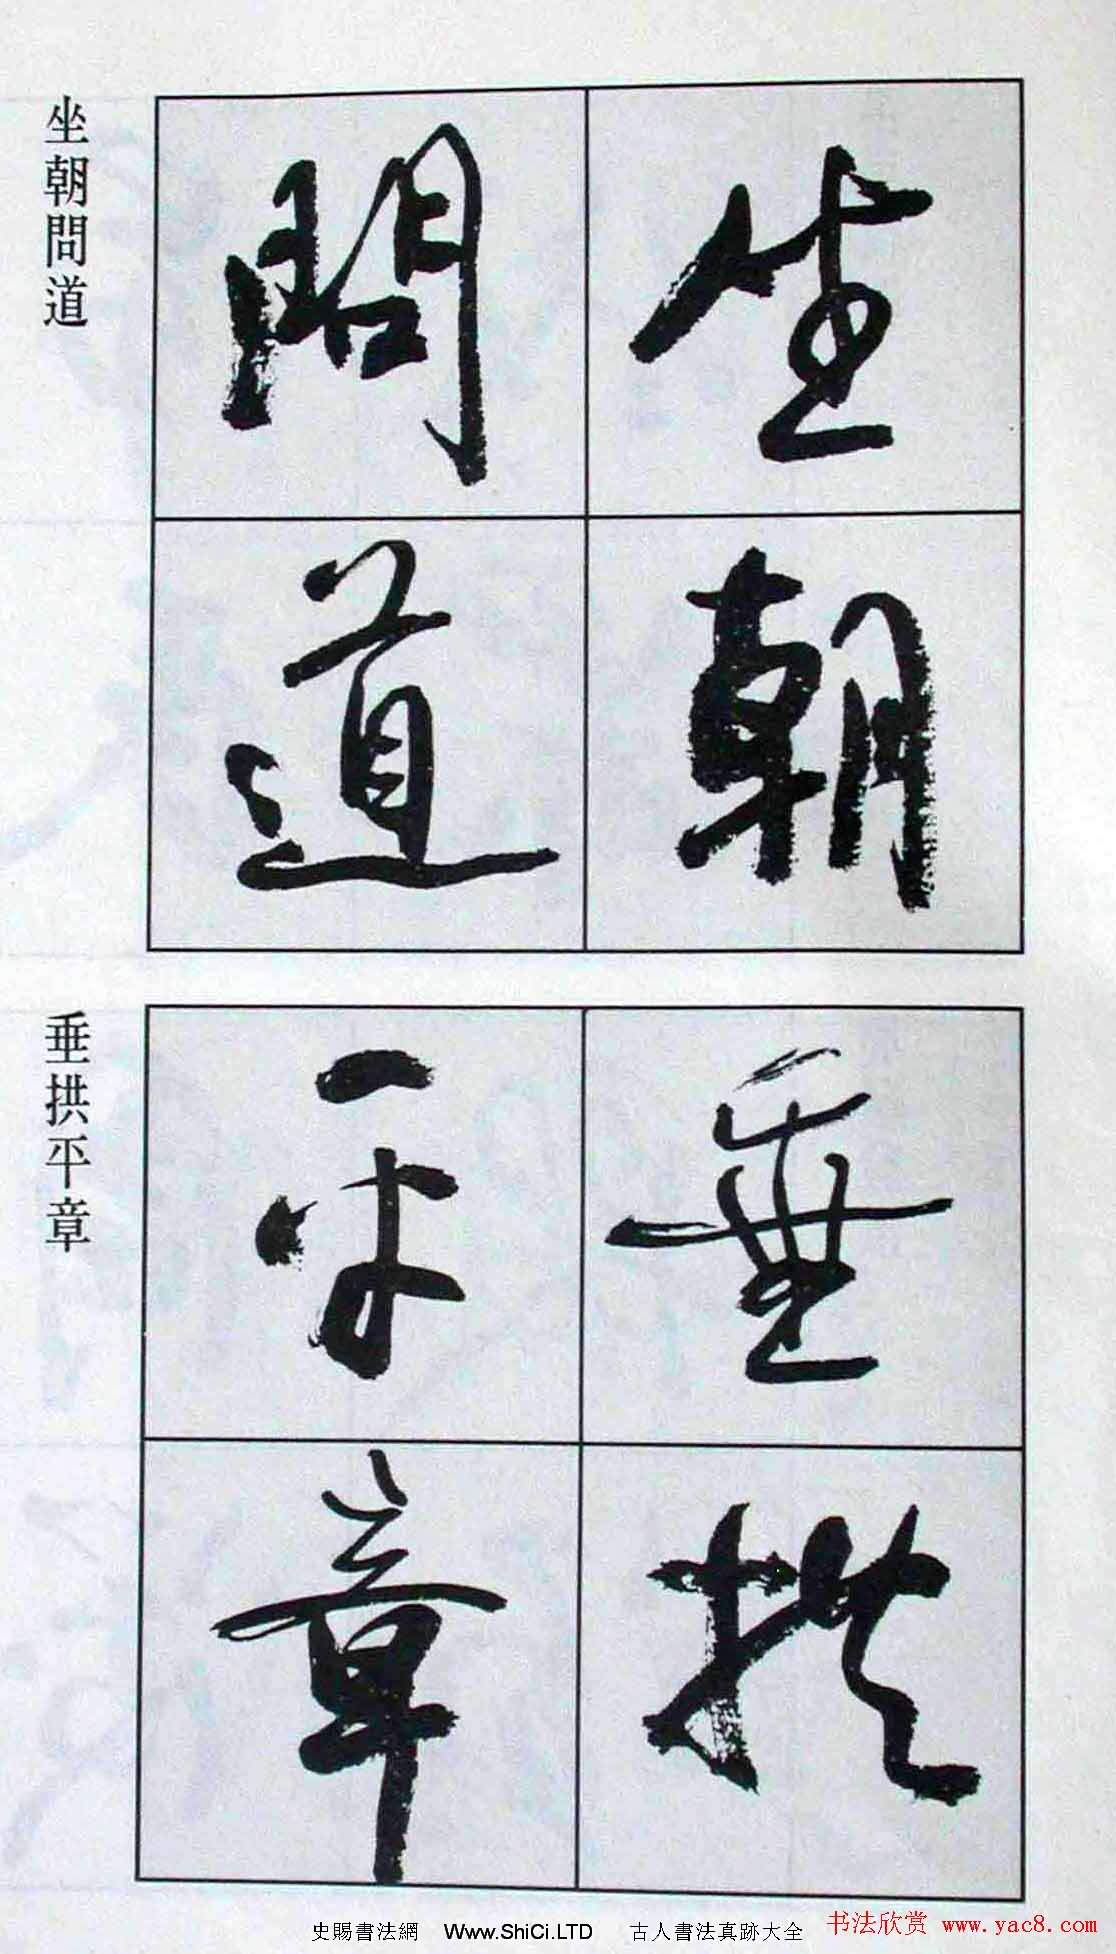 坐朝問道
坐朝
問道
垂拱平章
垂拱
平章
史賜書法網 Www.ShiCi.LTD 古人書法真跡大全
书法欣赏 www.yac8.com